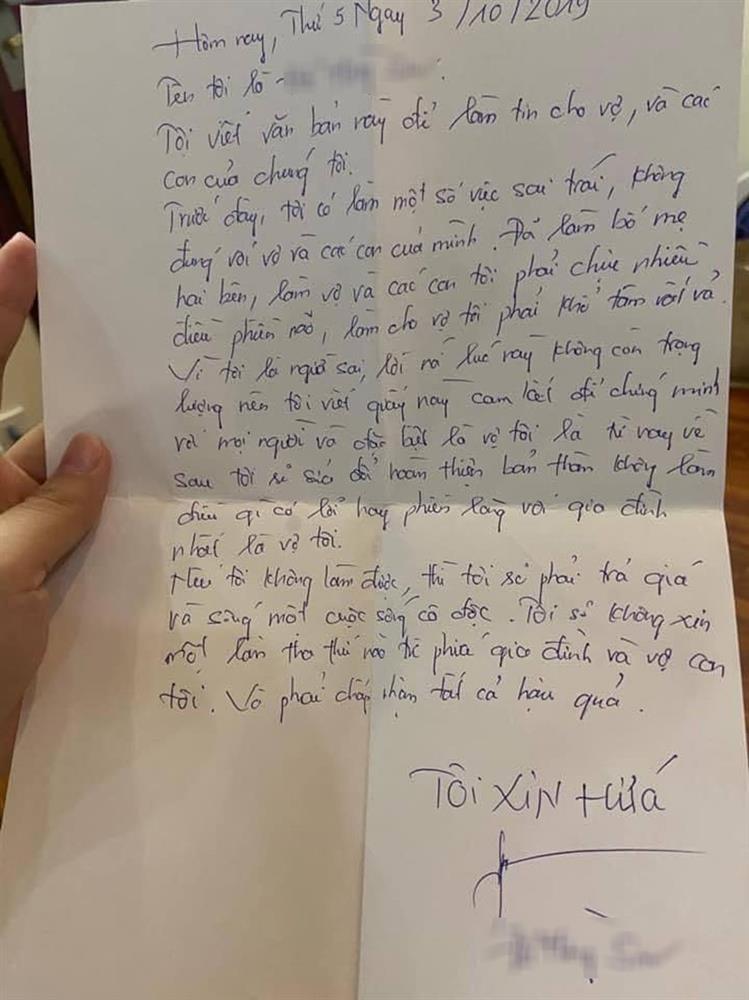 Hôm nay, Thứ 5 Ngày 3/10/2019
Tên tôi là
Tôi viết văn bản này để làm tin cho vợ, và các
con của chúng tôi.
Trước đây, tôi có làm một số việc sai trái, không
đúng với vợ và các con của mình. Đã làm bố mẹ
hai bên, làm vợ và các con tôi phải chịu nhiều
điều phiền não, làm cho vợ tôi phải khổ tâm vất vả.
Vì tôi là người sai, lời nói lúc này không còn trọng
lượng nên tôi viết giấy này cam kết để chứng minh
với mọi người và đặc biệt là vợ tôi là từ nay về
sau tôi sẽ sửa đổi hoàn thiện bản thân không làm
điều gì có lỗi hay phiền lòng với gia đình
nhất là vợ tôi.
Nếu tôi không làm được, thì tôi sẽ phải trả giá
và sống một cuộc sống cô độc. Tôi sẽ không xin
một lần tha thứ nào từ phía gia đình và vợ con
tôi. Và phải chấp nhận tất cả hậu quả.
TÔI XIN HỨA